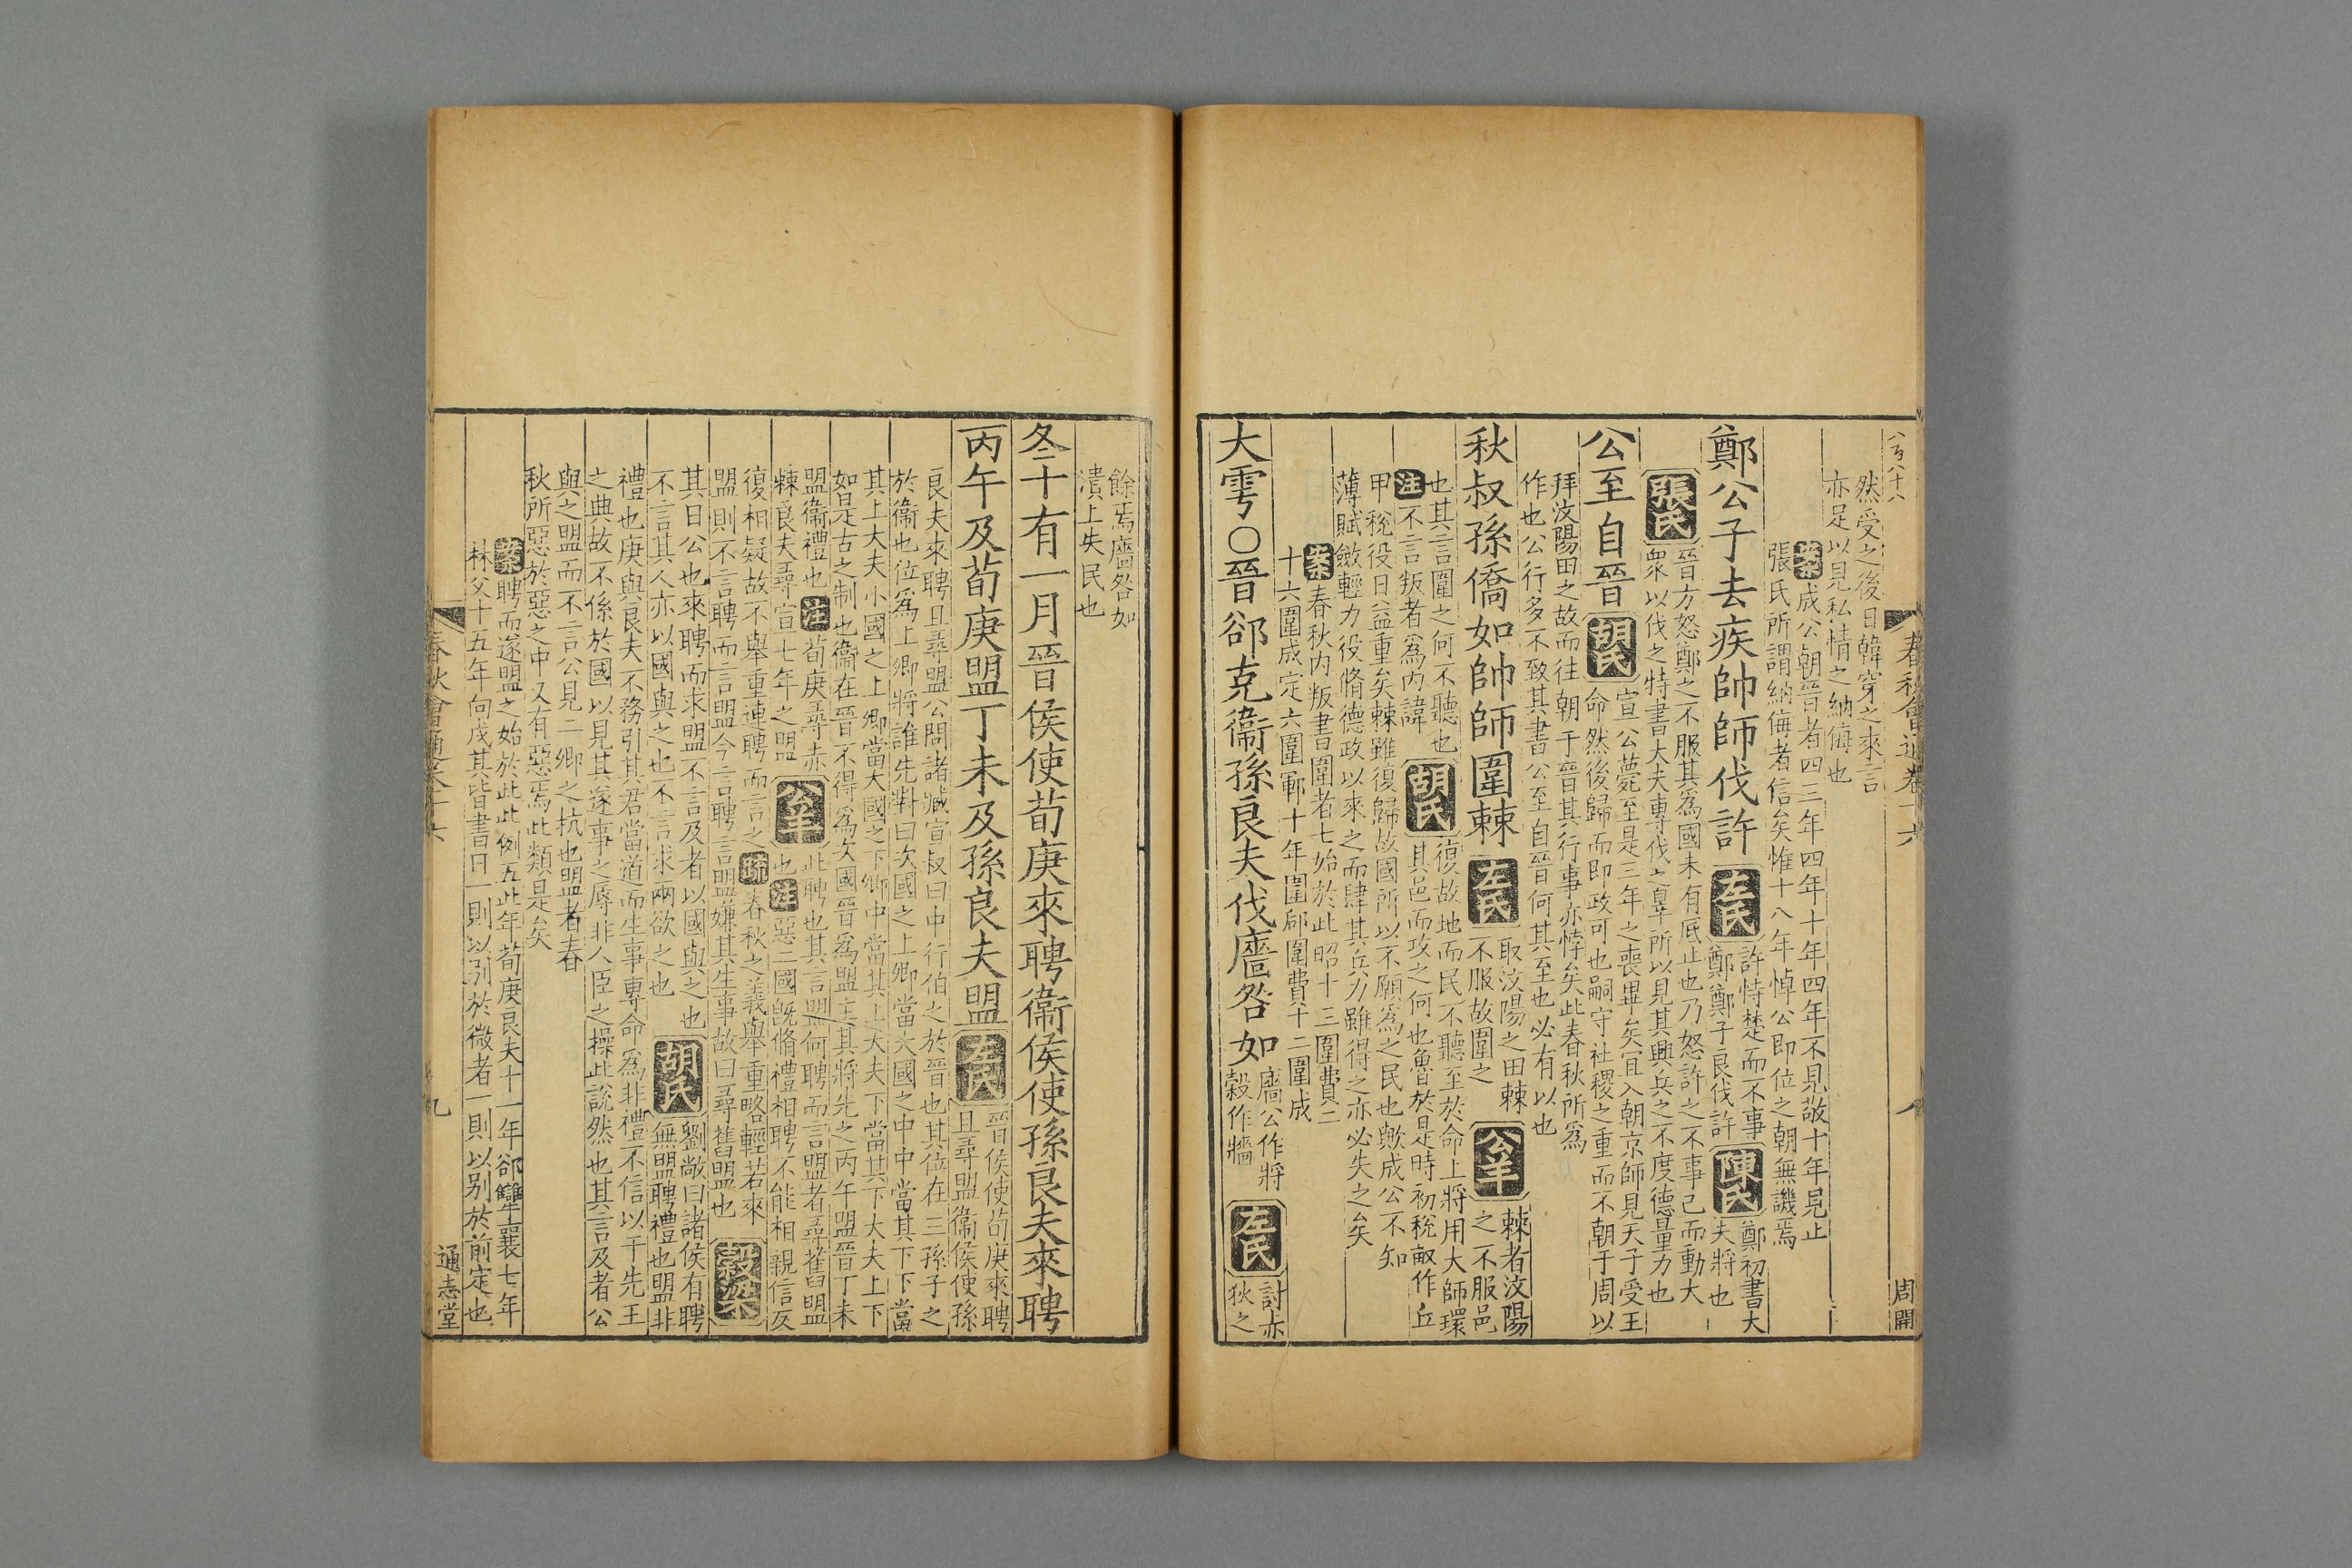 八百八十八
春秋會通卷十六
八
周開
然受之後日韓穿之來言
亦足以見私情之納侮也
案成公朝晉者四三年四年十年四年不見敬十年見止
張氏所謂納侮者信矣惟十八年悼公即位之朝無譏焉
鄭公子去疾帥師伐許
左氏
許恃楚而不事
鄭鄭子良伐許
陳氏
鄭初書大
夫將也
張氏
晉方怒鄭之不服其為國未有厎止也乃怒許之不事己而動大
衆以伐之特書大夫專伐之辠所以見其興兵之不度德量力也
公至自晉
胡氏
宣公薨至是三年之喪畢矣宜入朝京師見天子受王
命然後歸而即政可也嗣守社稷之重而不朝于周以
拜汶陽田之故而往朝于晉其行事亦悖矣此春秋所為
作也公行多不致其書公至自晉何其至也必有以也
秋叔孫僑如帥師圍棘
左氏
取汶陽之田棘
不服故圍之
公羊
棘者汶陽
之不服邑
也其言圍之何不聽也
注不言叛者為內諱
胡氏
復故地而民不聽至於命上將用大師環
其邑而攻之何也魯於是時初稅畝作丘
甲稅役日益重矣棘雖復歸故國所以不願為之民也歟成公不知
薄賦斂輕力役脩德政以來之而肆其兵力雖得之亦必失之矣
案春秋內叛書圍者七始於此昭十三圍費二
十六圍成定六圍鄆十年圍郈圍費十二圍成
大雩○晉郤克衞孫良夫伐廧咎如
廧公作將
穀作牆
左氏
討赤
狄之
餘焉廧咎如
潰上失民也
冬十有一月晉侯使荀庚來聘衞侯使孫良夫來聘
丙午及荀庚盟丁未及孫良夫盟
左氏
晉侯使荀庚來聘
且尋盟衞侯使孫
良夫來聘且尋盟公問諸臧宣叔曰中行伯之於晉也其位在三孫子之
於衞也位為上卿將誰先對曰次國之上卿當大國之中中當其下下當
其上大夫小國之上卿當大國之下卿中當其上大夫下當其下大夫上下
如是古之制也衞在晉不得為次國晉為盟主其將先之丙午盟晉丁未
盟衞禮也注荀庚尋赤
棘良夫尋宣七年之盟
公羊
此聘也其言盟何聘而言盟者尋舊盟
也注惡二國旣脩禮相聘不能相親信反
復相疑故不舉重連聘而言之疏春秋之義舉重略輕若來
盟則不言聘而言盟今言聘言盟嫌其生事故曰尋舊盟也
穀梁
其日公也來聘而求盟不言及者以國與之也
不言其人亦以國與之也不言求兩欲之也
胡氏
劉敞曰諸侯有聘
無盟聘禮也盟非
禮也庚與良夫不務引其君當道而生事專命為非禮不信以干先王
之典故不係於國以見其遂事之辱非人臣之操此說然也其言及者公
與之盟而不言公見二卿之抗也盟者春
秋所惡於惡之中又有惡焉此類是矣
案聘而遂盟之始於此此例五此年荀庚良夫十一年郤犫襄七年
林父十五年向戌其皆書日一則以別於微者一則以別於前定也
春秋會通卷十六
九
通志堂